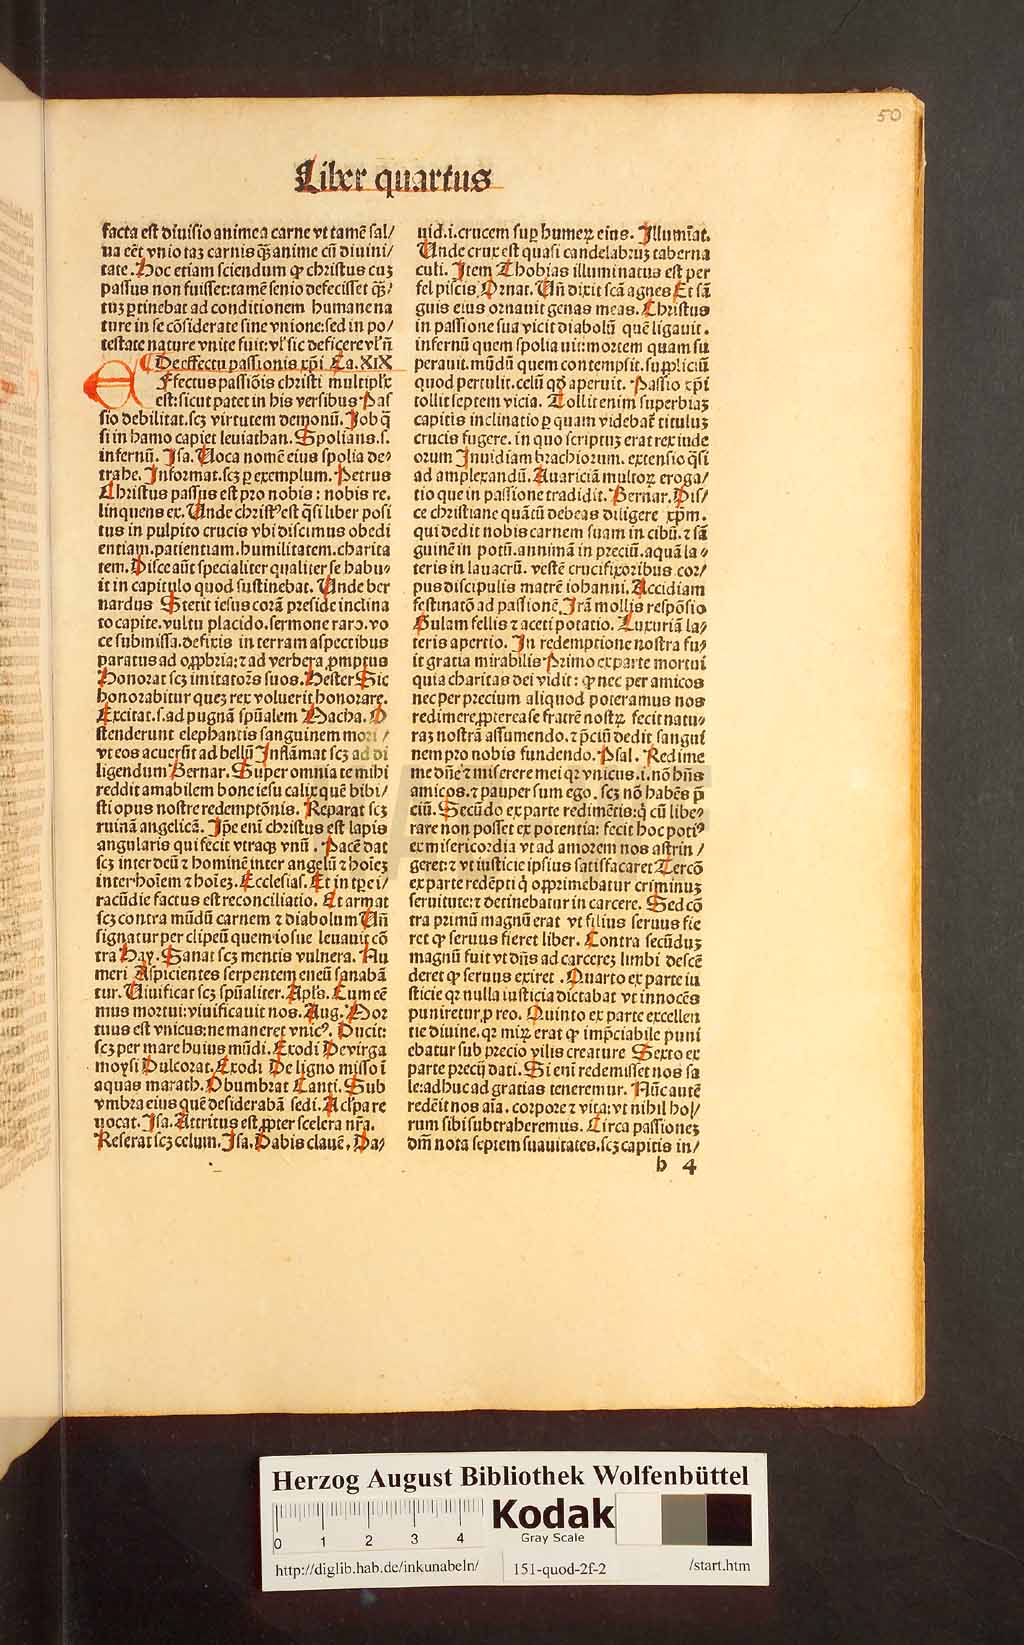 50
Liber quartus
facta est diuisio anime a carne vt tamē sal/
ua eēt vnio taz carnis q̄ȝ anime cū diuini/
tate. Hoc etiam sciendum ꝙ christus cuȝ
passus non fuisset: tamē senio defecisset q̄ȝ/
tuȝ ꝑtinebat ad conditionem humane na
ture in se cōsiderate sine vnione: sed in po/
testate nature vnite fuit: vꝉ sic deficere vꝉ ñ
De effectu passionis xp̄i Ca. XIX
Effectus passiōis christi multiplꝛ
est: sicut patet in his versibus Pas
sio debilitat. scȝ virtutem demonū. Job q̄
si in hamo capiet leuiathan. Spolians. s.
infernū. Jsa. Uoca nomē eius spolia de⸗
trahe. Jnformat. scȝ ꝑ exemplum. Petrus
Christus passus est pro nobis: nobis re.
linquens ex. Unde christꝰ est q̄si liber posi
tus in pulpito crucis vbi discimus obedi
entiam. patientiam. humilitatem. charita
tem. Disce aūt specialiter qualiter se habu⸗
it in capitulo quod sustinebat. Unde ber
nardus Stetit iesus corā preside inclina
to capite. vultu placido. sermone raro. vo
ce submissa. defixis in terram aspectibus
paratus ad oꝓpbria: ⁊ ad verbera ꝓmptus
Honorat scȝ imitatoēs suos. Hester Sic
honorabitur queȝ rex voluerit honorare.
Excitat. s. ad pugnā spūalem Macha. O
stenderunt elephantis sanguinem mori /
vt eos acuerūt ad bellū Jnflāmat scȝ ad di
ligendum Bernar. Super omnia te mihi
reddit amabilem bone iesu calix quē bibi/
sti opus nostre redemptōnis. Reparat scȝ
ruinā angelicā. Jpē enī christus est lapis
angularis qui fecit vtraqȝ vnū. Pacē dat
scȝ inter deū ⁊ hominē inter angelū ⁊ hoīeȝ
inter hoīem ⁊ hoīeȝ. Ecclesias. Et in tp̄e i/
racūdie factus est reconciliatio. Et armat
scȝ contra mūdū carnem ⁊ diabolum Uñ
signatur per clipeū quem iosue leuauit cō
tra Hay. Sanat scȝ mentis vulnera. Nu
meri Aspicientes serpentem eneū sanabā
tur. Uiuificat scȝ spūaliter. Apꝉs. Cum eē
mus mortui: viuificauit nos. Aug. Mor
tuus est vnicus: ne maneret vnicꝰ. Ducit:
scȝ per mare huius mūdi. Exodi De virga
moysi Dulcorat. Exodi De ligno misso ī
aquas marath. Obumbrat Canti. Sub
vmbra eius quē desiderabā sedi. A cꝉpa re
uocat. Jsa. Attritus est ꝓpter scelera nr̄a.
Reserat scȝ celum. Jsa. Dabis clauē. Da/
uid. i. crucem suꝑ humeꝝ eius. Jllumīat.
Unde crux est quasi candelabruȝ taberna
culi. Jtem Thobias illuminatus est per
fel piscis Ornat. Uñ dixit scā agnes Et sā
guis eius ornauit genas meas. Christus
in passione sua vicit diabolū quē ligauit.
infernū quem spoliauit: mortem quam su
perauit. mūdū quem contempsit. suppliciū
quod pertulit. celū qđ aperuit. Passio xp̄i
tollit septem vicia. Tollit enim superbiaȝ
capitis inclinatio ꝑ quam videbat̄ tituluȝ
crucis fugere. in quo scriptuȝ erat rex iude
orum Jnuidiam brachiorum. extensio q̄si
ad amplexandū. Auariciā multoꝝ eroga/
tio que in passione tradidit. Bernar. Dis/
ce christiane quātū debeas diligere xp̄m.
qui dedit nobis carnem suam in cibū. ⁊ sā
guinē in potū. annimā in preciū. aquā la⸗
teris in lauacrū. vestē crucifixoribus cor/
pus discipulis matrē iohanni. Accidiam
festinatō ad passionē. Jrā mollis respōsio
Gulam fellis ⁊ aceti potatio. Luxuriā la/
teris apertio. Jn redemptione nostra fu/
it gratia mirabilis Primo ex parte mortui
quia charitas dei vidit: ꝙ nec per amicos
nec per precium aliquod poteramus nos
redimere, ꝓpterea se fratrē nostꝝ fecit natu⸗
raȝ nostrā assumendo. ⁊ p̄ciū dedit sangui
nem pro nobis fundendo. Psal. Redime
me dñe ⁊ miserere mei qꝛ vnicus. i. nō hn̄s
amicos. ⁊ pauper sum ego. scȝ nō habēs p̄
ciū. Secūdo ex parte redimētis: q̇ cū libe⸗
rare non posset ex potentia: fecit hoc potiꝰ
ex misericordia vt ad amorem nos astrin /
geret: ⁊ vt iusticie ipsius satisfaceret Tercō
ex parte redēpti q̇ opprimebatur criminuȝ
seruitute: ⁊ detinebatur in carcere. Sed cō
tra primū magnū erat vt filius seruus fie
ret ꝙ seruus fieret liber. Contra secūduȝ
magnū fuit vt dñs ad carcereȝ limbi descē
deret ꝙ seruus exiret. Quarto ex parte iu
sticie qꝛ nulla iusticia dictabat vt innocēs
puniretur ꝓ reo. Quinto ex parte excellen
tie diuine. qꝛ miꝝ erat ꝙ imp̄ciabile puni
ebatur sub precio vilis creature Sexto ex
parte precij dati. Si eni redemisset nos so
le: adhuc ad gratias teneremur. Nūc autē
redēit nos aīa. corpore ⁊ vita: vt nihil hoꝝ/
rum sibi subtraheremus. Circa passioneȝ
dn̄i nota septem suauitates. scȝ capitis in/
b 4
Herzog August Bibliothek Wolfenbüttel
0 1 2 3 4
Kodak
Gray Scale
http://diglib.hab.de/inkunabeln/ 151-quod-2f-2 /start.htm